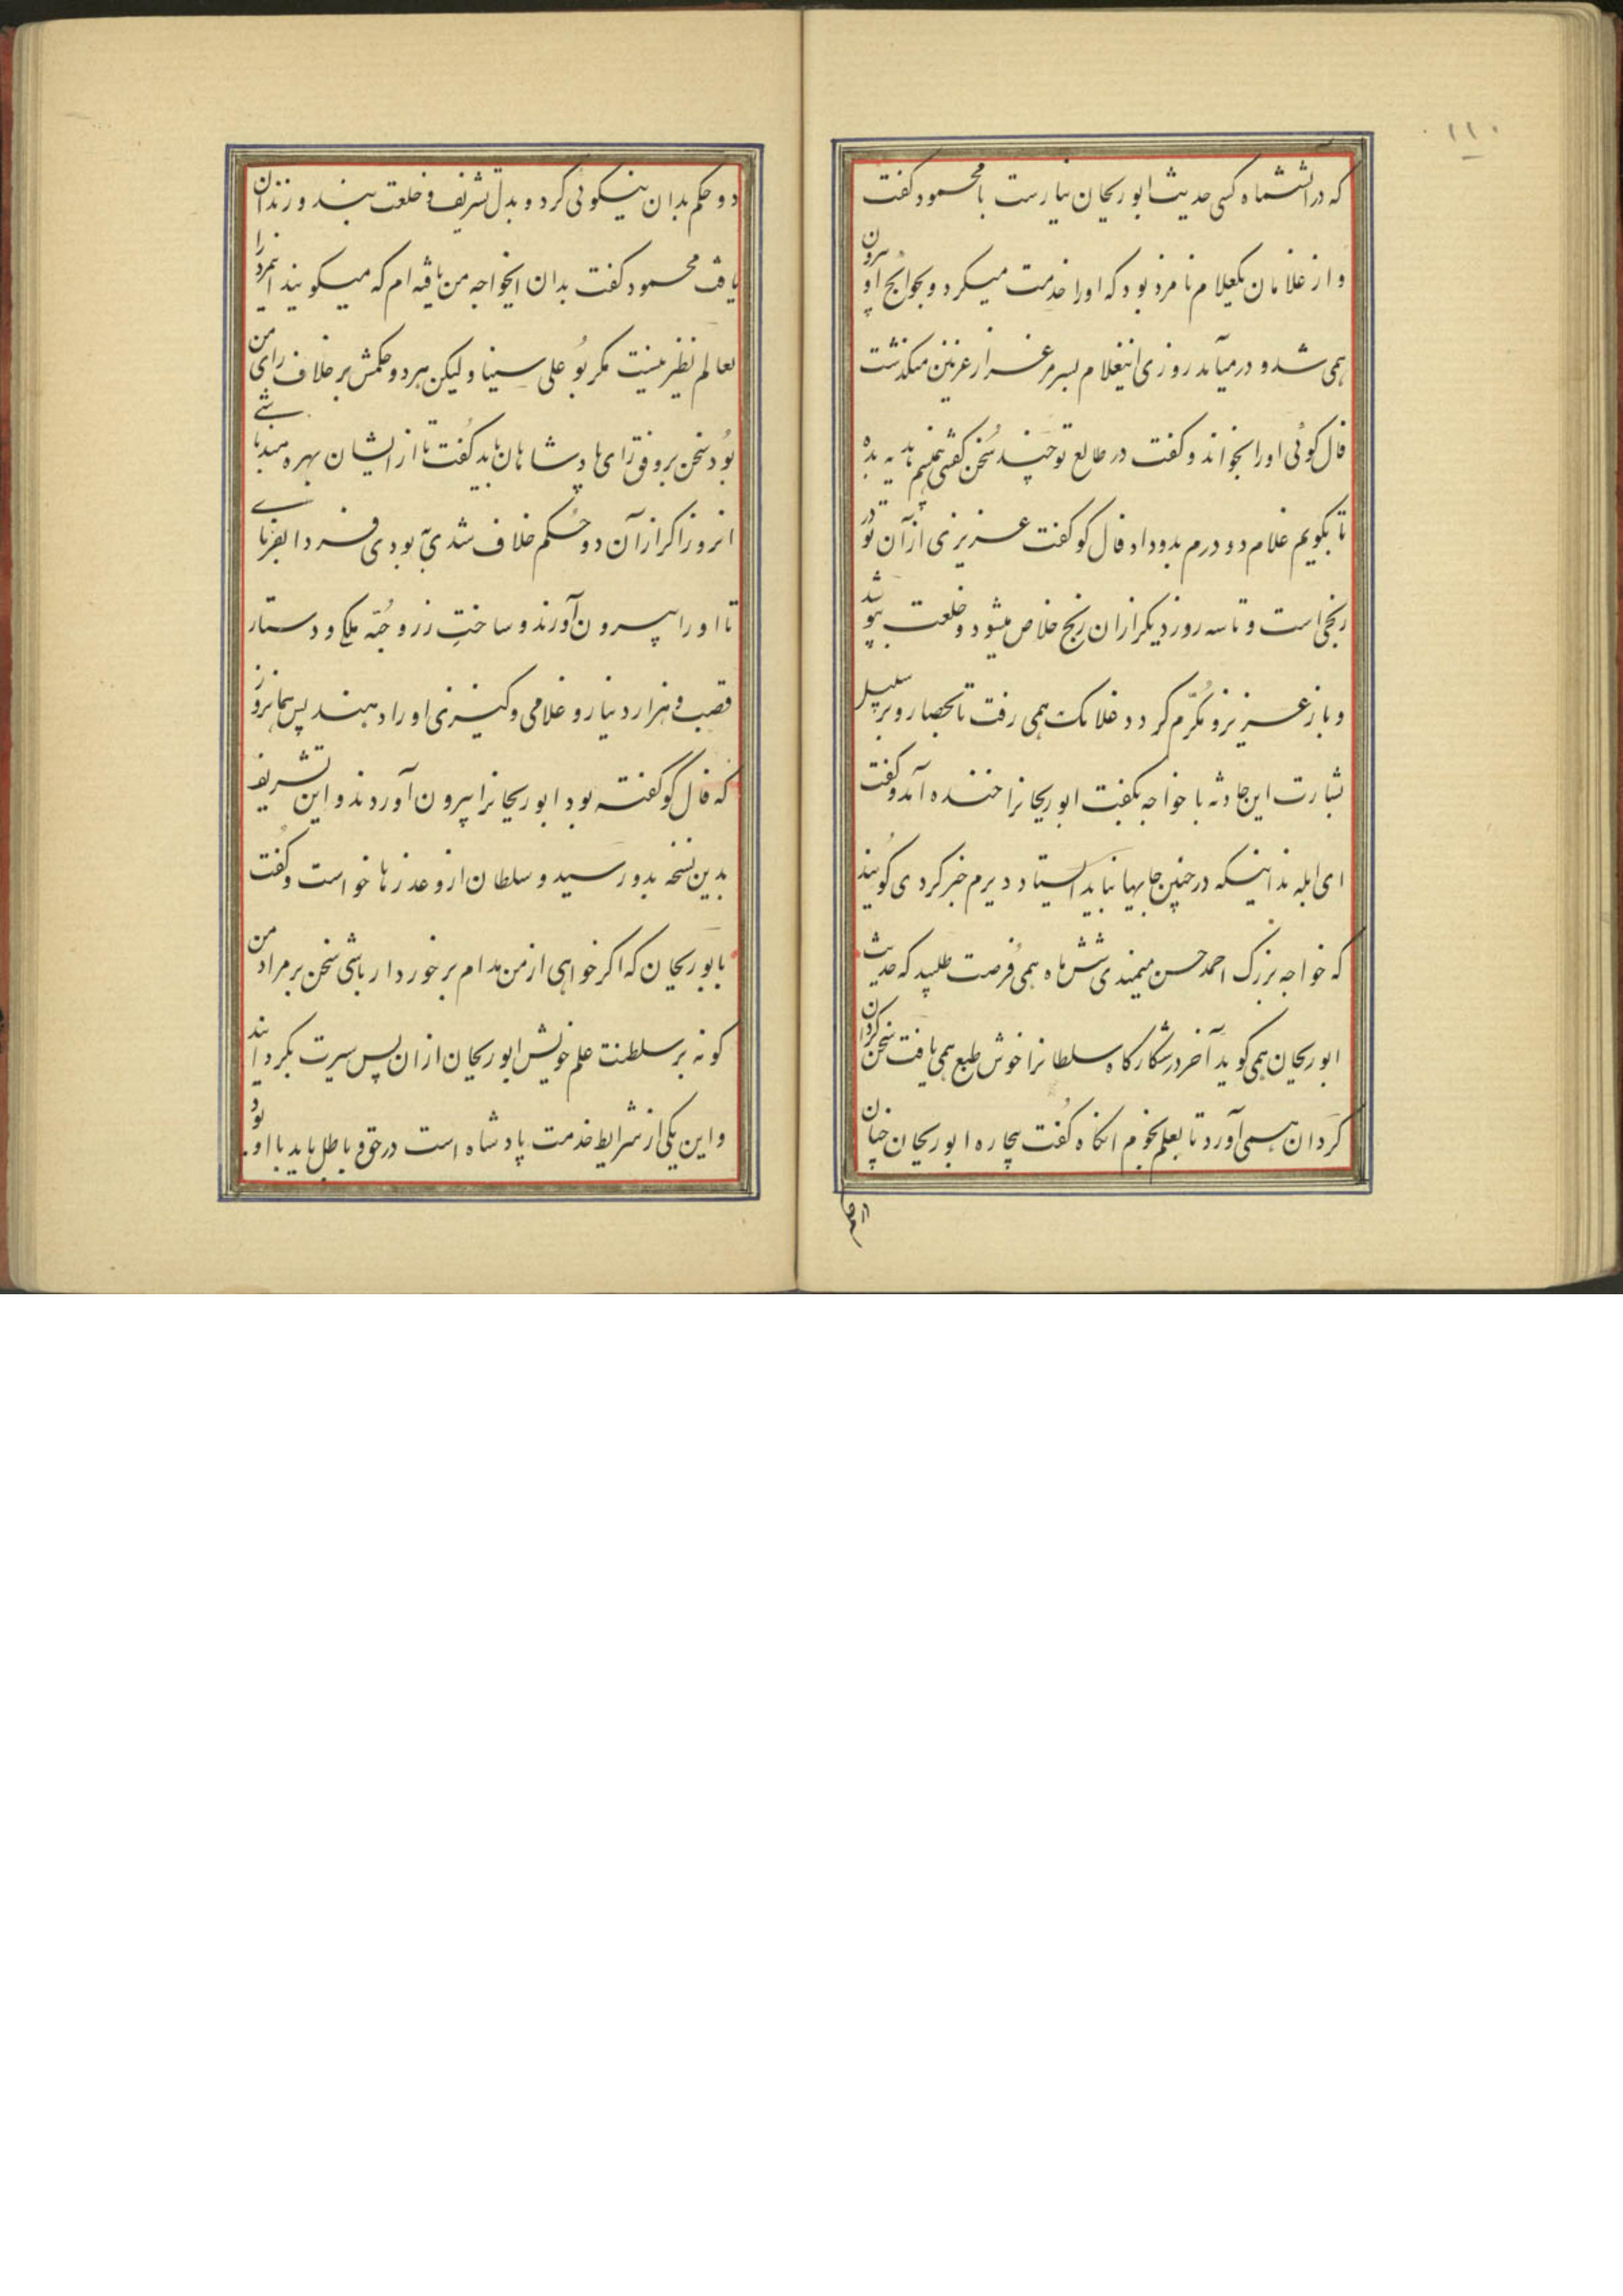 ۱۱۰
که در آن ششماه کسی حدیث ابوریحان نیارست با محمود گفت
و از غلامان یکغلام نامزد بود که او را خدمت میکرد و بحوایج او بیرون
همی شد و در میآمد روزی اینغلام بسر مرغزار غزنین میگذشت
فال گوئی او را بخواند و گفت در طالع تو چند سخن گفتنی همی‌بینم هدیه بده
تا بگویم غلام دو درم بدو داد فال گو گفت عزیزی از آن تو در
رنجی است و تا سه روز دیگر از آن رنج خلاص میشود و خلعت پوشد
و باز عزیز و مکرّم گردد غلامک همی رفت تا بحصار و بر سبیل
بشارت این حادثه با خواجه بگفت ابوریحانرا خنده آمد و گفت
ای ابله ندانیکه در چنین جایها نباید ایستاد دو درم خبر کردی گویند
که خواجه بزرگ احمد حسن میمندی شش ماه همی فرصت طلبید که حدیث
ابوریحان همی گوید آخر در شکارگاه سلطانرا خوش طبع همی یافت سخن گردان
گردان همی آورد تا بعلم نجوم انگاه گفت بیچاره ابوریحان چنان
دو حکم بدان نیکوئی کرد و بدل تشریف و خلعت بند و زندان
یافت محمود گفت بدان ایخواجه من یافته‌ام که میگویند اینمرد را
بعالم نظیر نیست مگر بو علی سینا ولیکن هر دو حکمش بر خلاف رای من
بود سخن بر وفق رای پادشاهان باید گفت تا از ایشان بهره‌مند باشی
انروز اگر از آن دو حکم خلاف شدی به بودی فردا بفرمای
تا او را بیرون آورند و ساخت زر و جبّه ملکی و دستار
قصب و هزار دینار و غلامی و کنیزی او را دهند پس همانروز
که فال گو گفته بود ابوریحانرا بیرون آوردند و این تشریف
بدین نسخه بدو رسید و سلطان از و عذرها خواست و گفت
یا بوریحان که اگر خواهی از من مدام برخوردار باشی سخن بر مراد من
گو نه بر سلطنت علم خویش ابوریحان از ان پس سیرت بگردانید
و این یکی از شرایط خدمت پادشاه است در حق و باطل باید با او بود